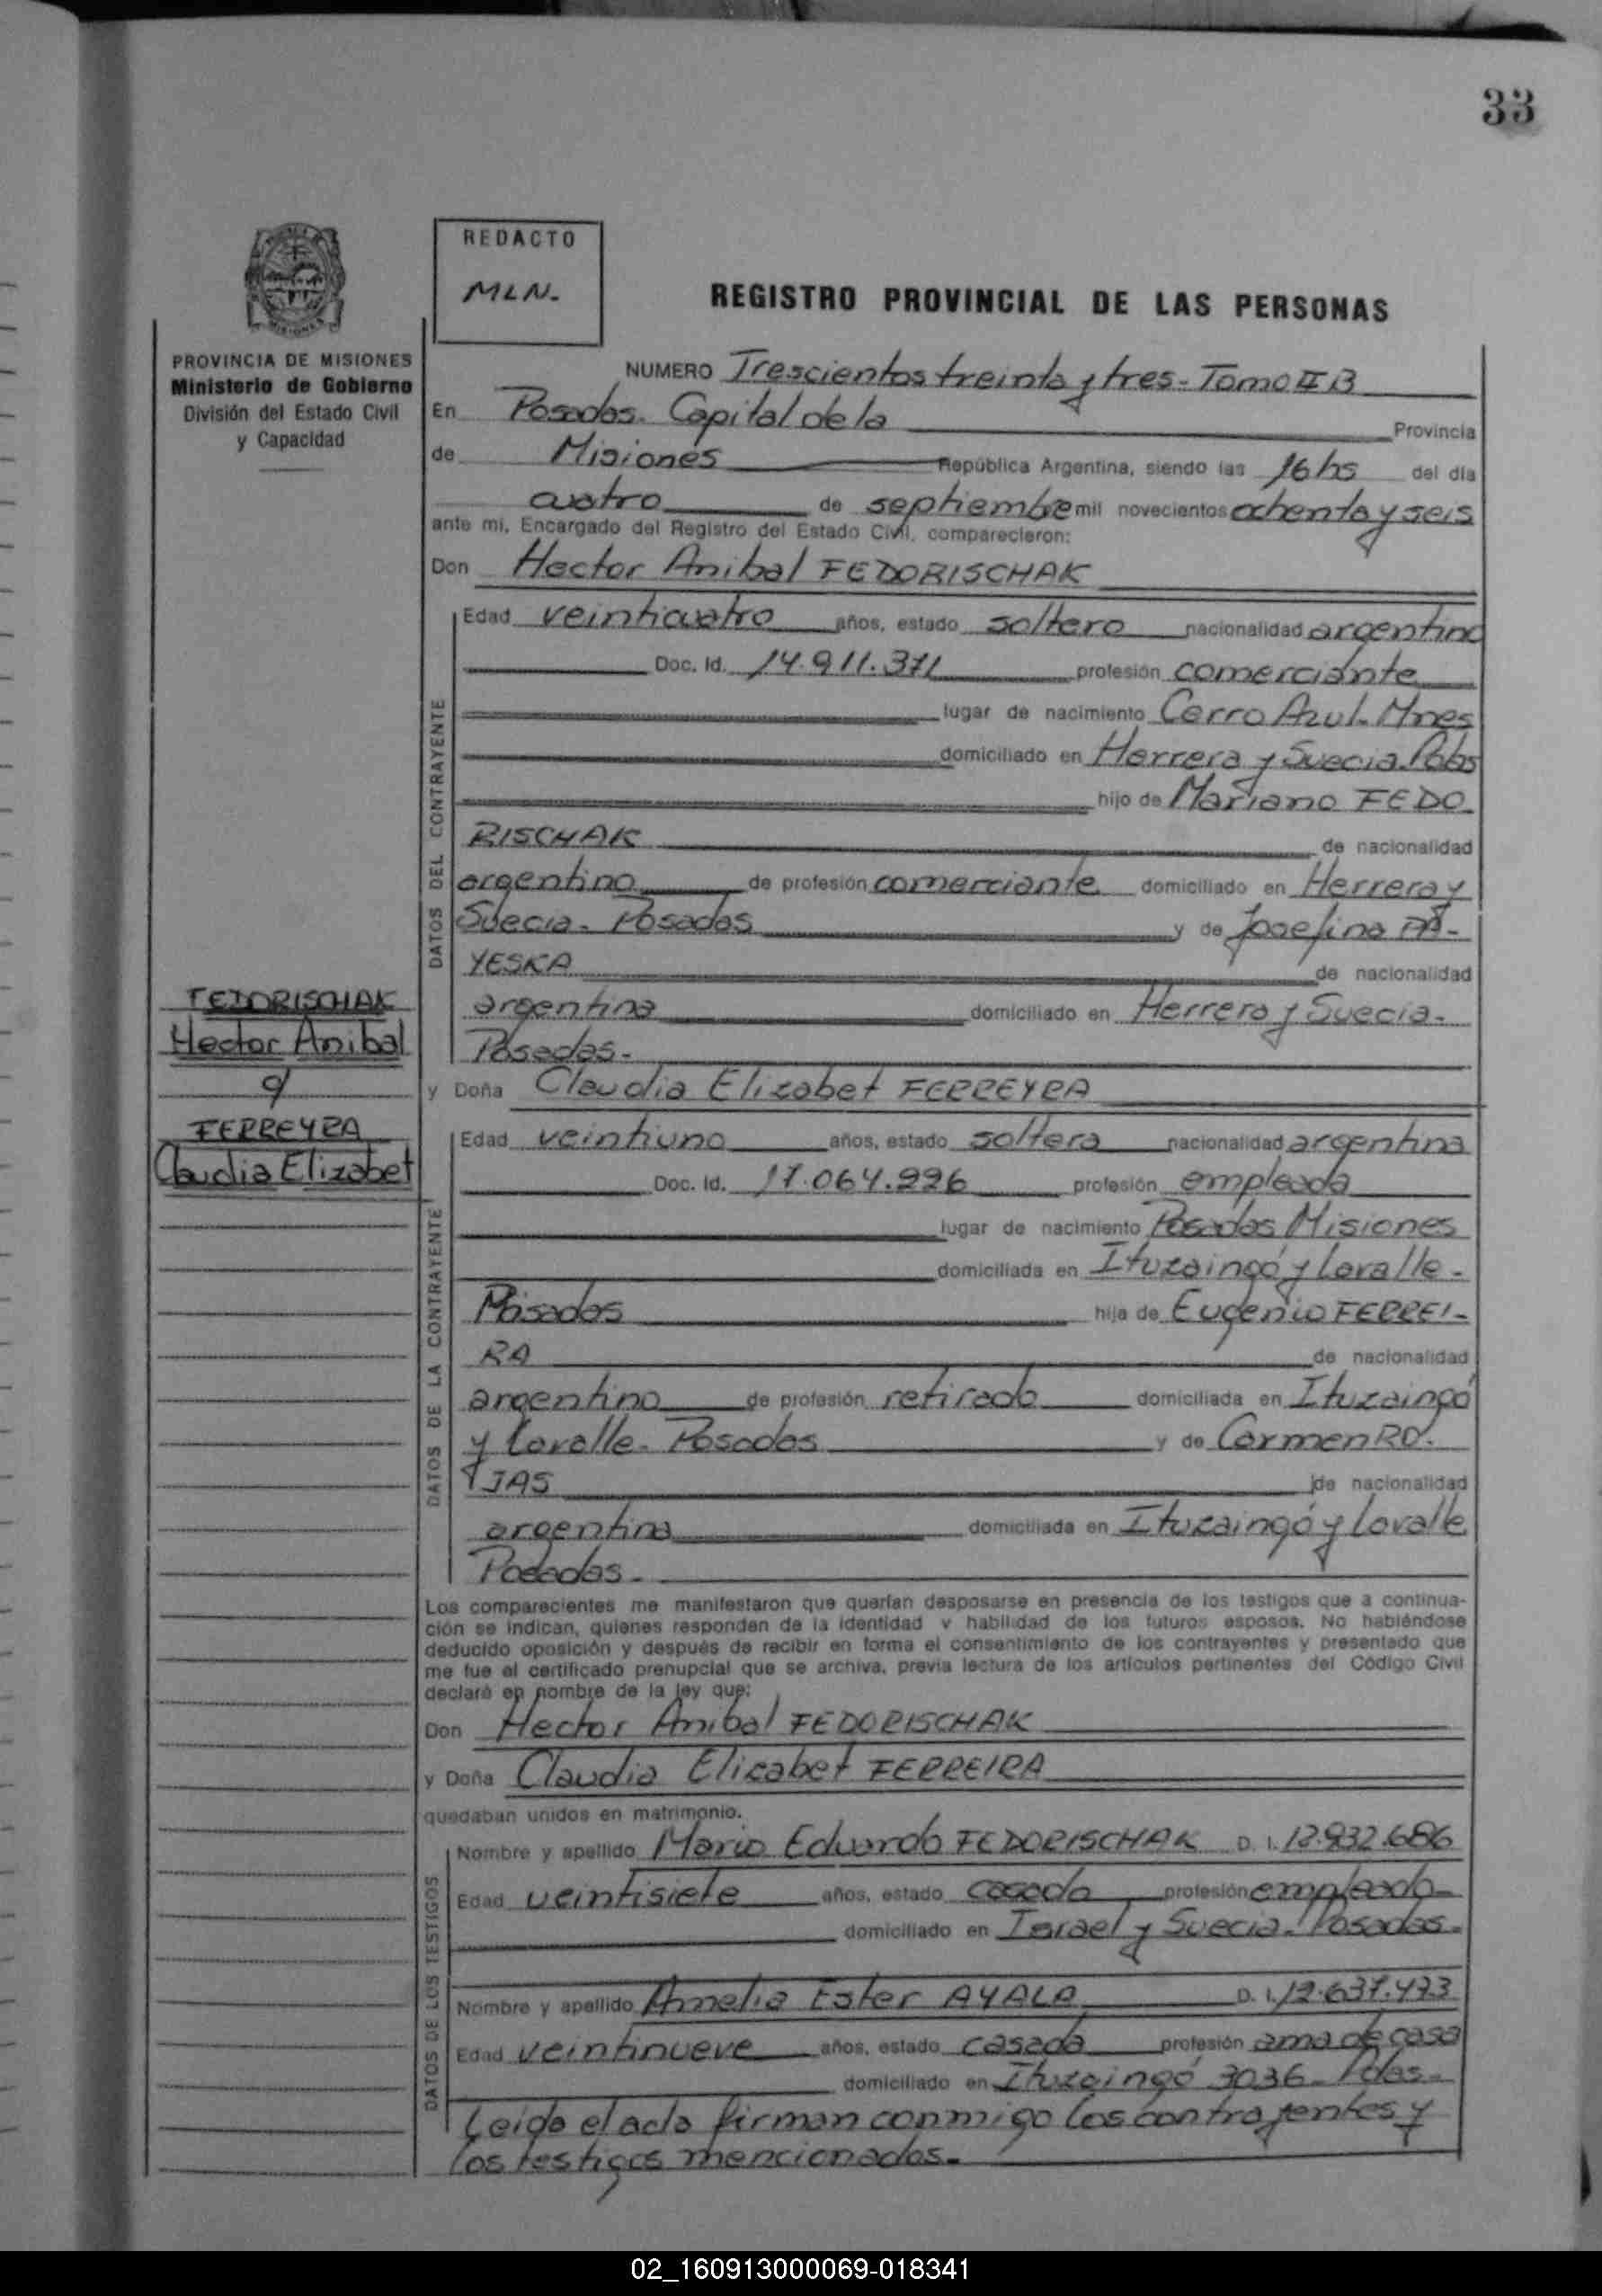 33
REDACTO
MLN.
REGISTRO PROVINCIAL DE LAS PERSONAS
MISIONES
PROVINCIA DE MISIONES
Ministerio de Gobierno
División del Estado Civil
y Capacidad
NUMERO Trescientos treinta y tres - Tomo II B
En Posadas. Capital de la Provincia
de Misiones República Argentina, siendo las 16 hs del día
cuatro de septiembre mil novecientos ochenta y seis
ante mí, Encargado del Registro del Estado Civil, comparecieron:
Don Hector Anibal FEDORISCHAK
DATOS DEL CONTRAYENTE
Edad veinticuatro años, estado soltero nacionalidad argentino
Doc. Id. 14.911.371 profesión comerciante
lugar de nacimiento Cerro Azul. Mnes
domiciliado en Herrera y Suecia. Pdas
hijo de Mariano FEDO.
RISCHAK de nacionalidad
argentino de profesión comerciante domiciliado en Herrera y
Suecia - Posadas y de Josefina PA-
YESKA de nacionalidad
argentina domiciliado en Herrera y Suecia.
Posadas.
FEDORISCHAK
Hector Anibal
c/
FERREYRA
Claudia Elizabet
y Doña Claudia Elizabet FERREYRA
DATOS DE LA CONTRAYENTE
Edad veintiuno años, estado soltera nacionalidad argentina
Doc. Id. 17.064.996 profesión empleada
lugar de nacimiento Posadas Misiones
domiciliada en Ituzaingó y Lavalle -
Posadas hija de Eugenio FERREI-
RA de nacionalidad
argentino de profesión retirado domiciliada en Ituzaingó
y Lavalle - Posadas y de Carmen RO.
JAS de nacionalidad
argentina domiciliada en Ituzaingó y Lavalle
Posadas.
Los comparecientes me manifestaron que querían desposarse en presencia de los testigos que a continua-
ción se indican, quienes responden de la identidad y habilidad de los futuros esposos. No habiéndose
deducido oposición y después de recibir en forma el consentimiento de los contrayentes y presentado que
me fue el certificado prenupcial que se archiva, previa lectura de los artículos pertinentes del Código Civil
declaré en nombre de la ley que:
Don Hector Anibal FEDORISCHAK
y Doña Claudia Elizabet FERREIRA
quedaban unidos en matrimonio.
DATOS DE LOS TESTIGOS
Nombre y apellido Mario Eduardo FEDORISCHAK D. I. 12.932.686
Edad veintisiete años, estado casado profesión empleado
domiciliado en Israel y Suecia. Posadas.
Nombre y apellido Amelia Ester AYALA D. I. 12.637.473
Edad veintinueve años, estado casada profesión ama de casa
domiciliado en Ituzaingó 3036 - Pdas.
Leida el acta firman conmigo los contrayentes y
los testigos mencionados.
02_160913000069-018341